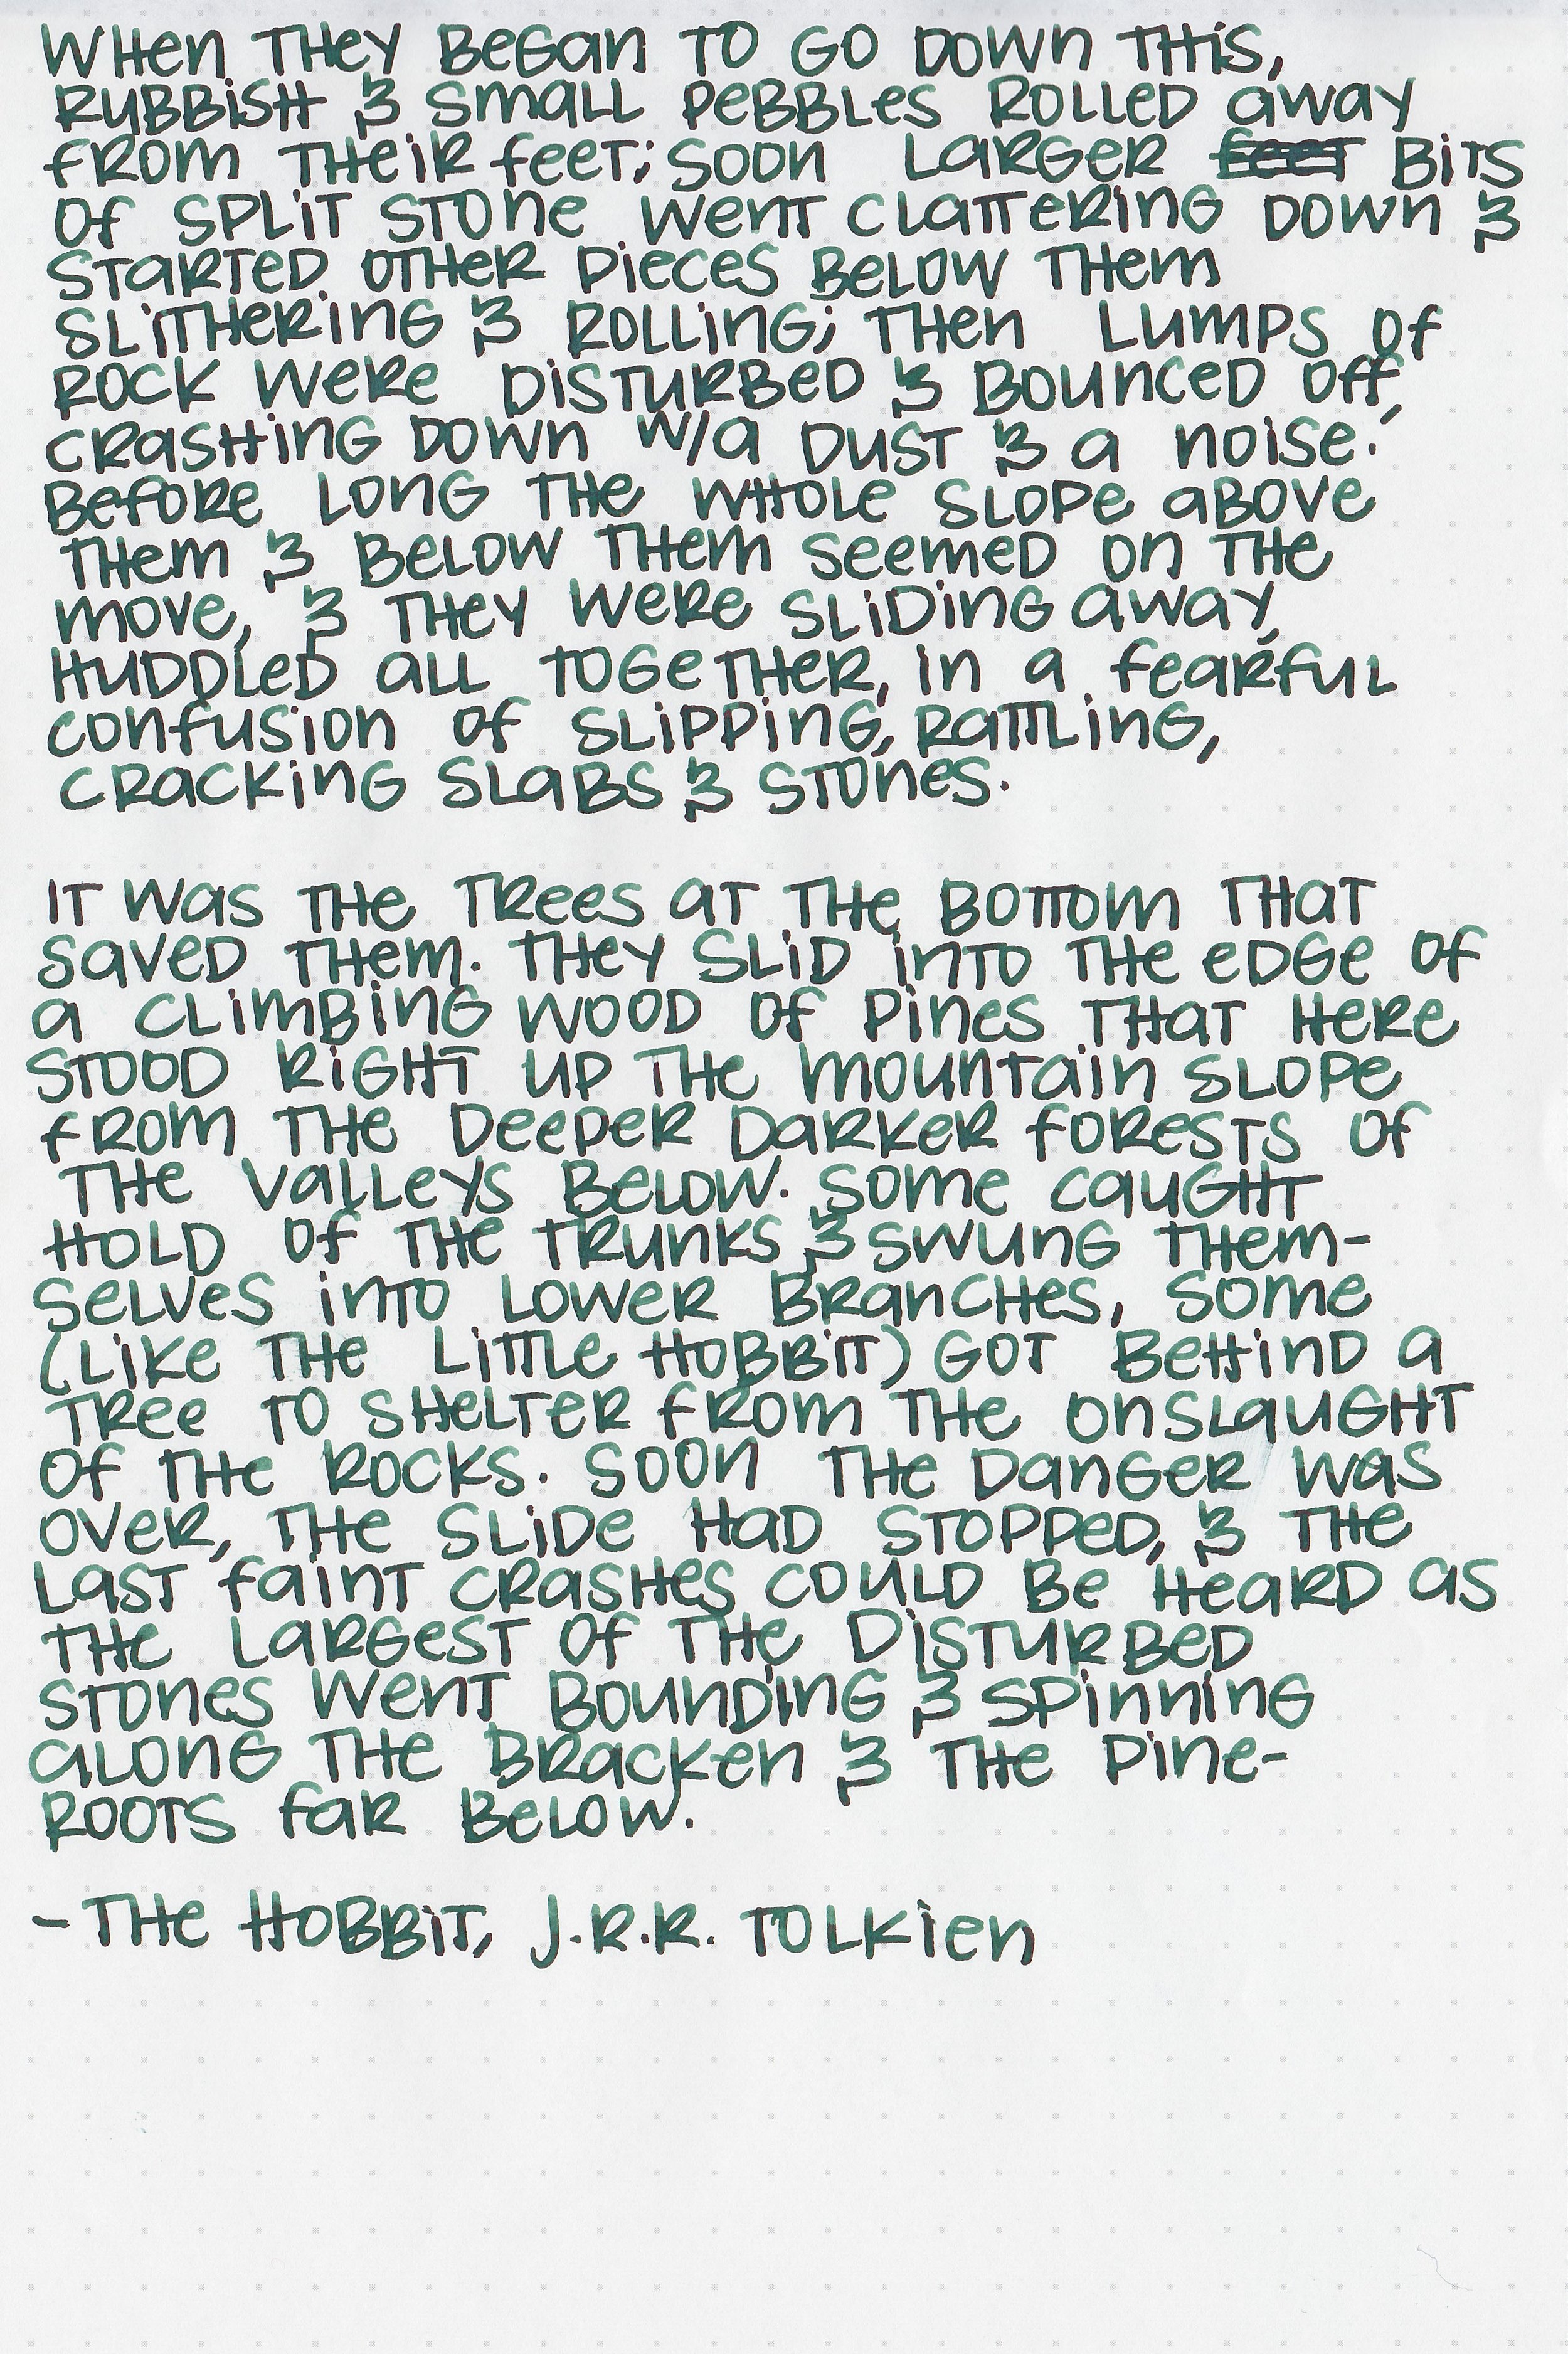 When they began to go down this,
rubbish & small pebbles rolled away
from their feet; soon larger ~~feet~~ bits
of split stone went clattering down &
started other pieces below them
slithering & rolling; then lumps of
rock were disturbed & bounced off,
crashing down w/a dust & a noise.
Before long the whole slope above
them & below them seemed on the
move, & they were sliding away,
huddled all together, in a fearful
confusion of slipping, rattling,
cracking slabs & stones.

It was the trees at the bottom that
saved them. They slid into the edge of
a climbing wood of pines that here
stood right up the mountain slope
from the deeper darker forests of
the valleys below. Some caught
hold of the trunks & swung them-
selves into lower branches, some
(like the little hobbit) got behind a
tree to shelter from the onslaught
of the rocks. Soon the danger was
over, the slide had stopped, & the
last faint crashes could be heard as
the largest of the disturbed
stones went bounding & spinning
along the bracken & the pine-
roots far below.

- The Hobbit, J.R.R. Tolkien